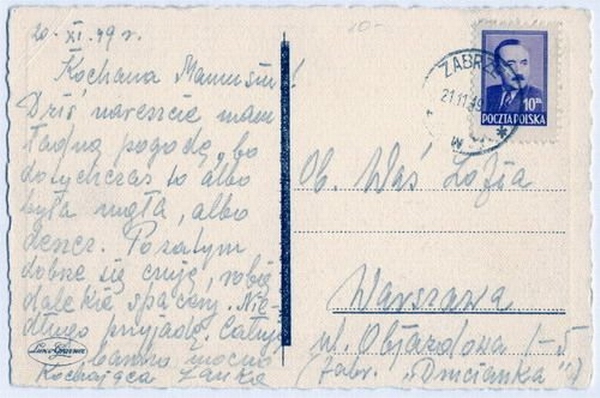 20. XI. 49 r.
Kochana Mamusiu!
Dziś nareszcie mam
ładną pogodę, bo
dotychczas to albo
była mgła, albo
deszcz. Pozatym
dobrze się czuję, robię
dalekie spacery. Nie-
długo przyjadę. Całuję
bardzo mocno
Kochająca Janka
ZABRZE
21.11.49
10 zł
POCZTA POLSKA
Ob. Waś Zofja
Warszawa
ul. Objazdowa 1-5
(fabr. "Drucianka")